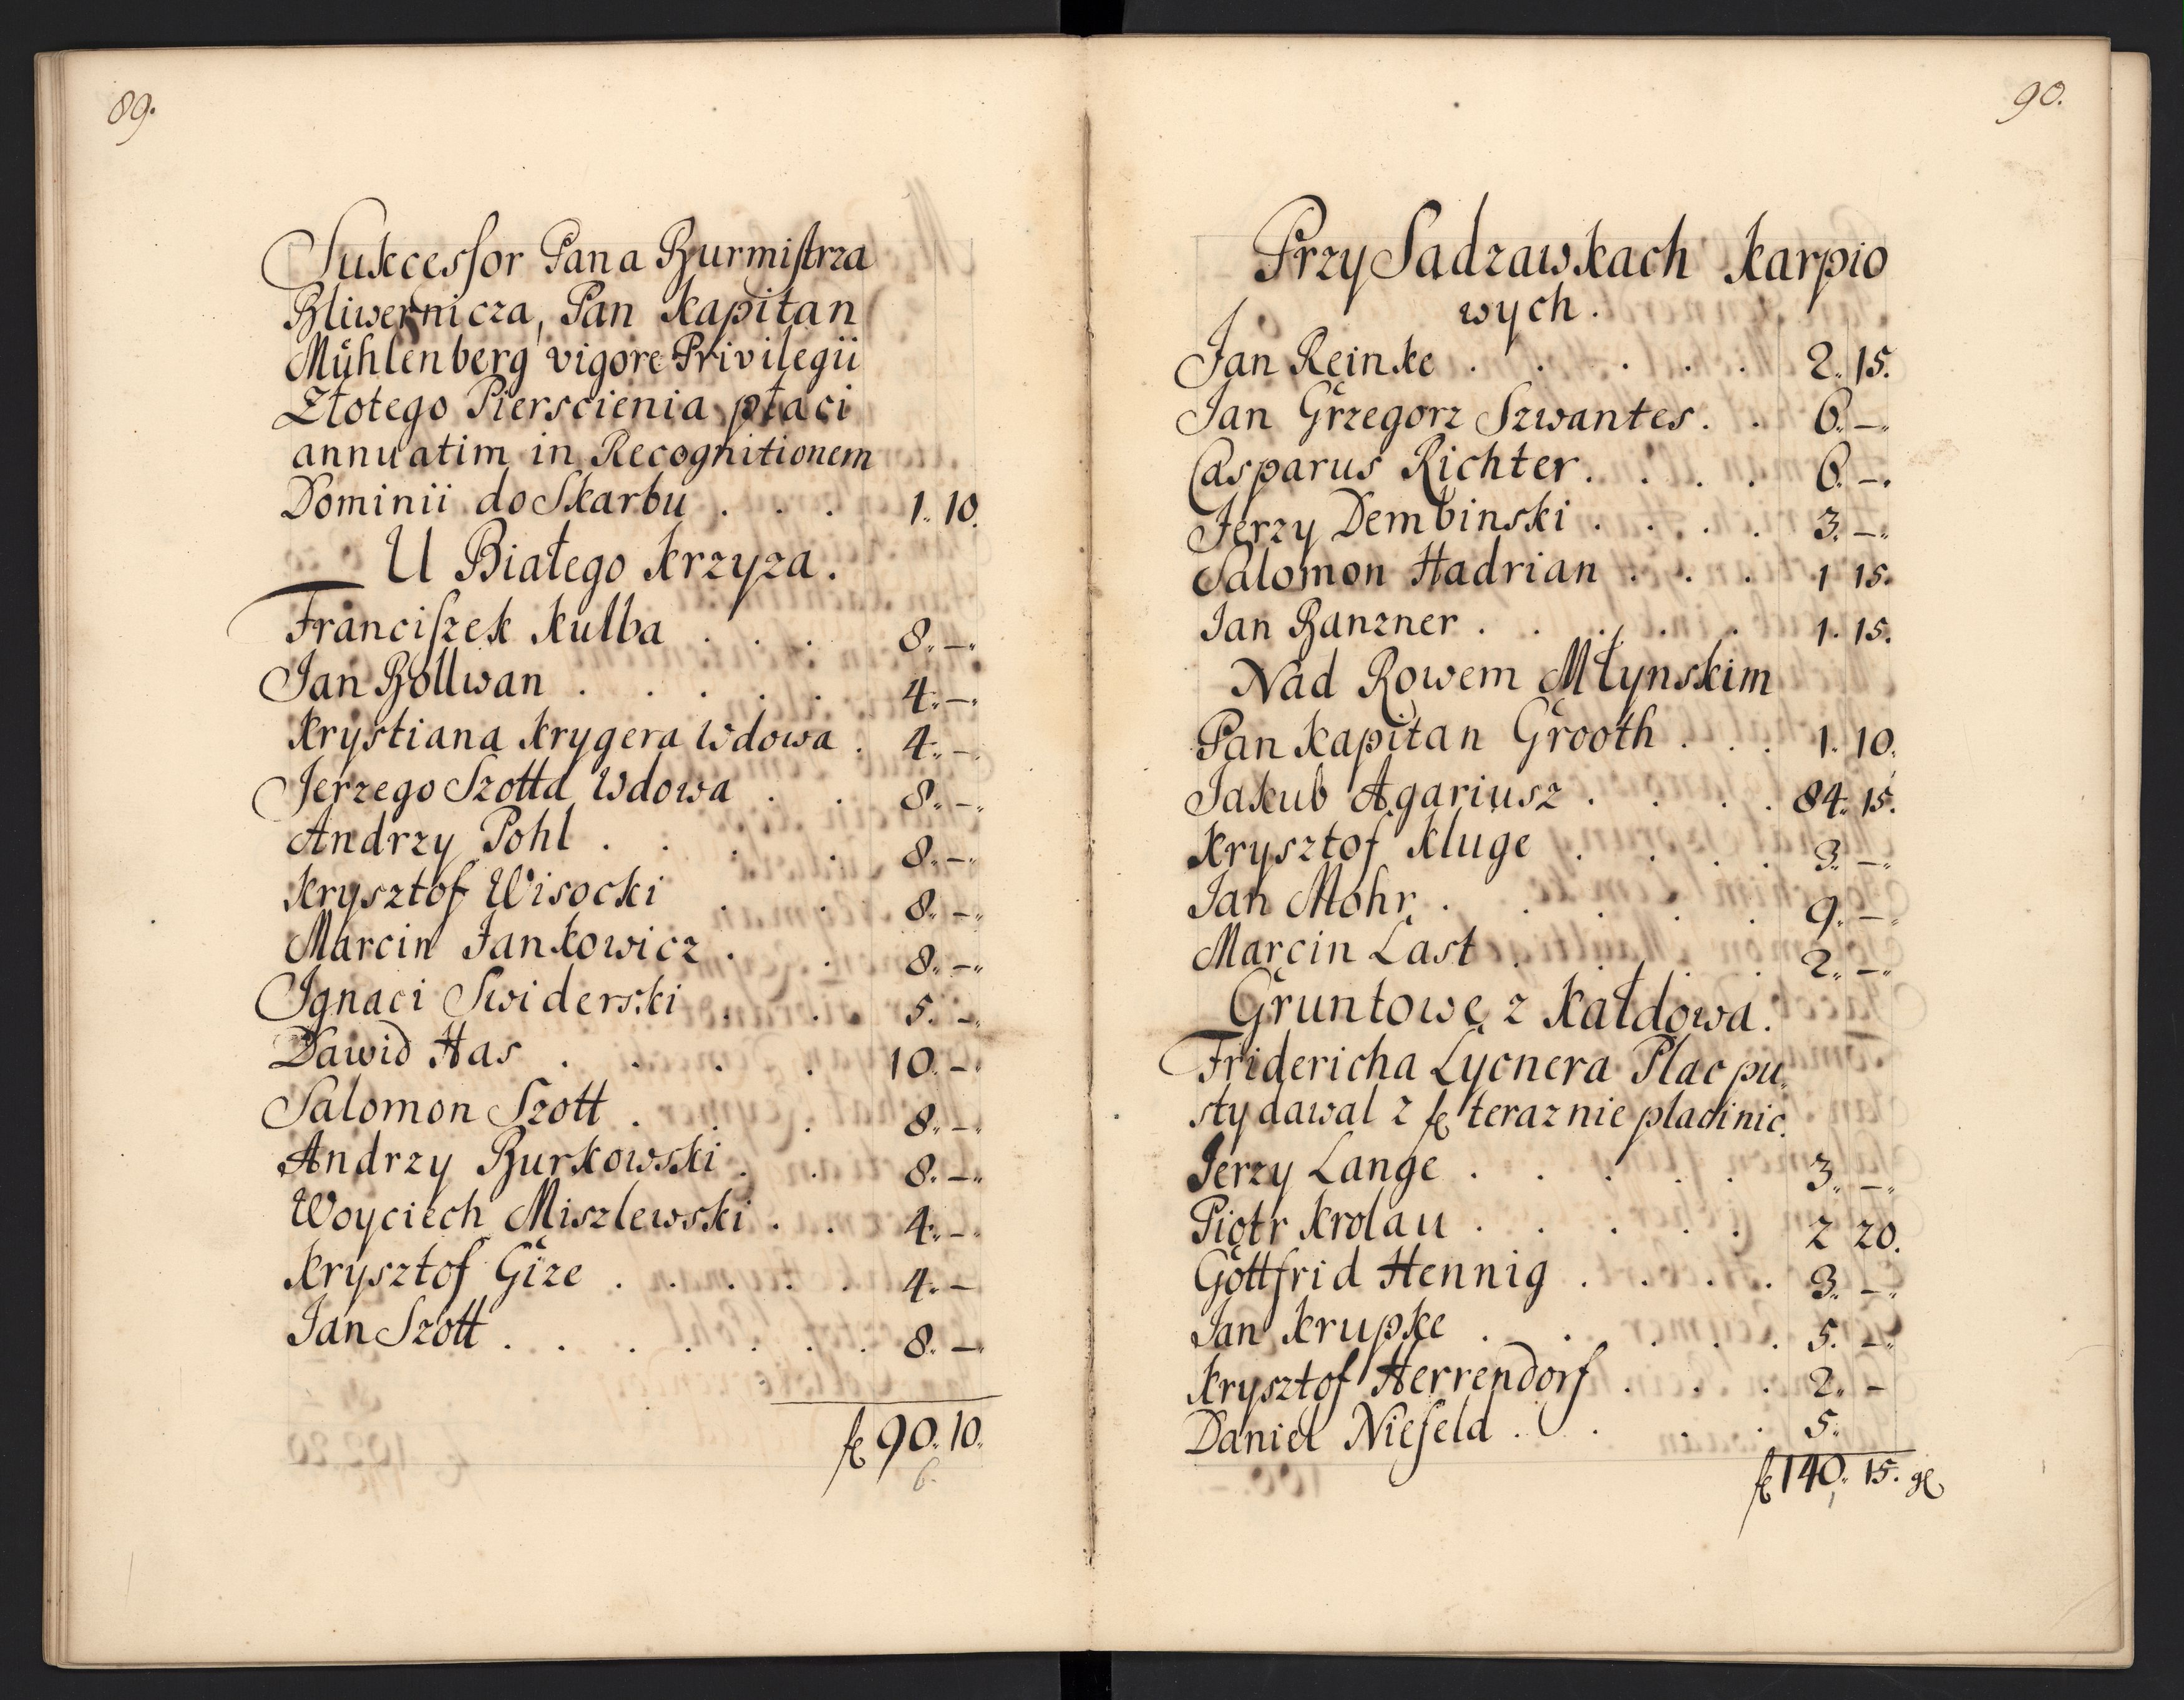 89.
Sukcessor Pana Burmistrza
Bliwernicza, Pan Kapitan
Mühlenberg vigore Privilegii
Złotego Pierscienia płaci
annuatim in Recognitionem
Dominii do Skarbu . . . 1. 10.
U Białego Krzyza.
Franciszek Kulba . . . 8. —
Jan Bollwan . . . . . 4. —
Krystiana Krygera Wdowa . 4. —
Jerzego Szotta Wdowa . . 8. —
Andrzy Pohl . . . . 8. —
Krysztof Wisocki . . 8. —
Marcin Jankowicz . . 8. —
Ignaci Swiderski . . 5. —
Dawid Has . . . . 10. —
Salomon Szott . . . 8. —
Andrzy Burkowski . . 8. —
Woyciech Miszlewski . . 4. —
Krysztof Gize . . . . . 4. —
Jan Szott . . . . . . . 8. —
fl 90. 10.
6.
90.
Przy Sadzawkach Karpio
wych.
Jan Reinke . . . . . 2. 15.
Jan Grzegorz Szwantes . . 6. —
Casparus Richter . . . . 6. —
Jerzy Dembinski . . . . 3. —
Salomon Hadrian . . . 1 15.
Jan Banzner . . . . . 1. 15.
Nad Rowem Młynskim
Pan Kapitan Grooth . . . 1. 10.
Jakub Agariusz . . . . 84. 15.
Krysztof Kluge . . . . 3. —
Jan Mohr . . . . . 9. —
Marcin Last . . . . 2. —
Gruntowe z Kałdowa.
Fridericha Lycnera Plac pu
sty dawal 2 fl teraz nie placi nic.
Jerzy Lange . . . . . 3. —
Piotr Krolau . . . . . 2 20.
Gottfrid Hennig . . . . 3. —
Jan Krupke . . . . . 5. —
Krysztof Herrendorf . . . 2. —
Daniel Niefeld . . . . 5.
fl 140. 15. gl